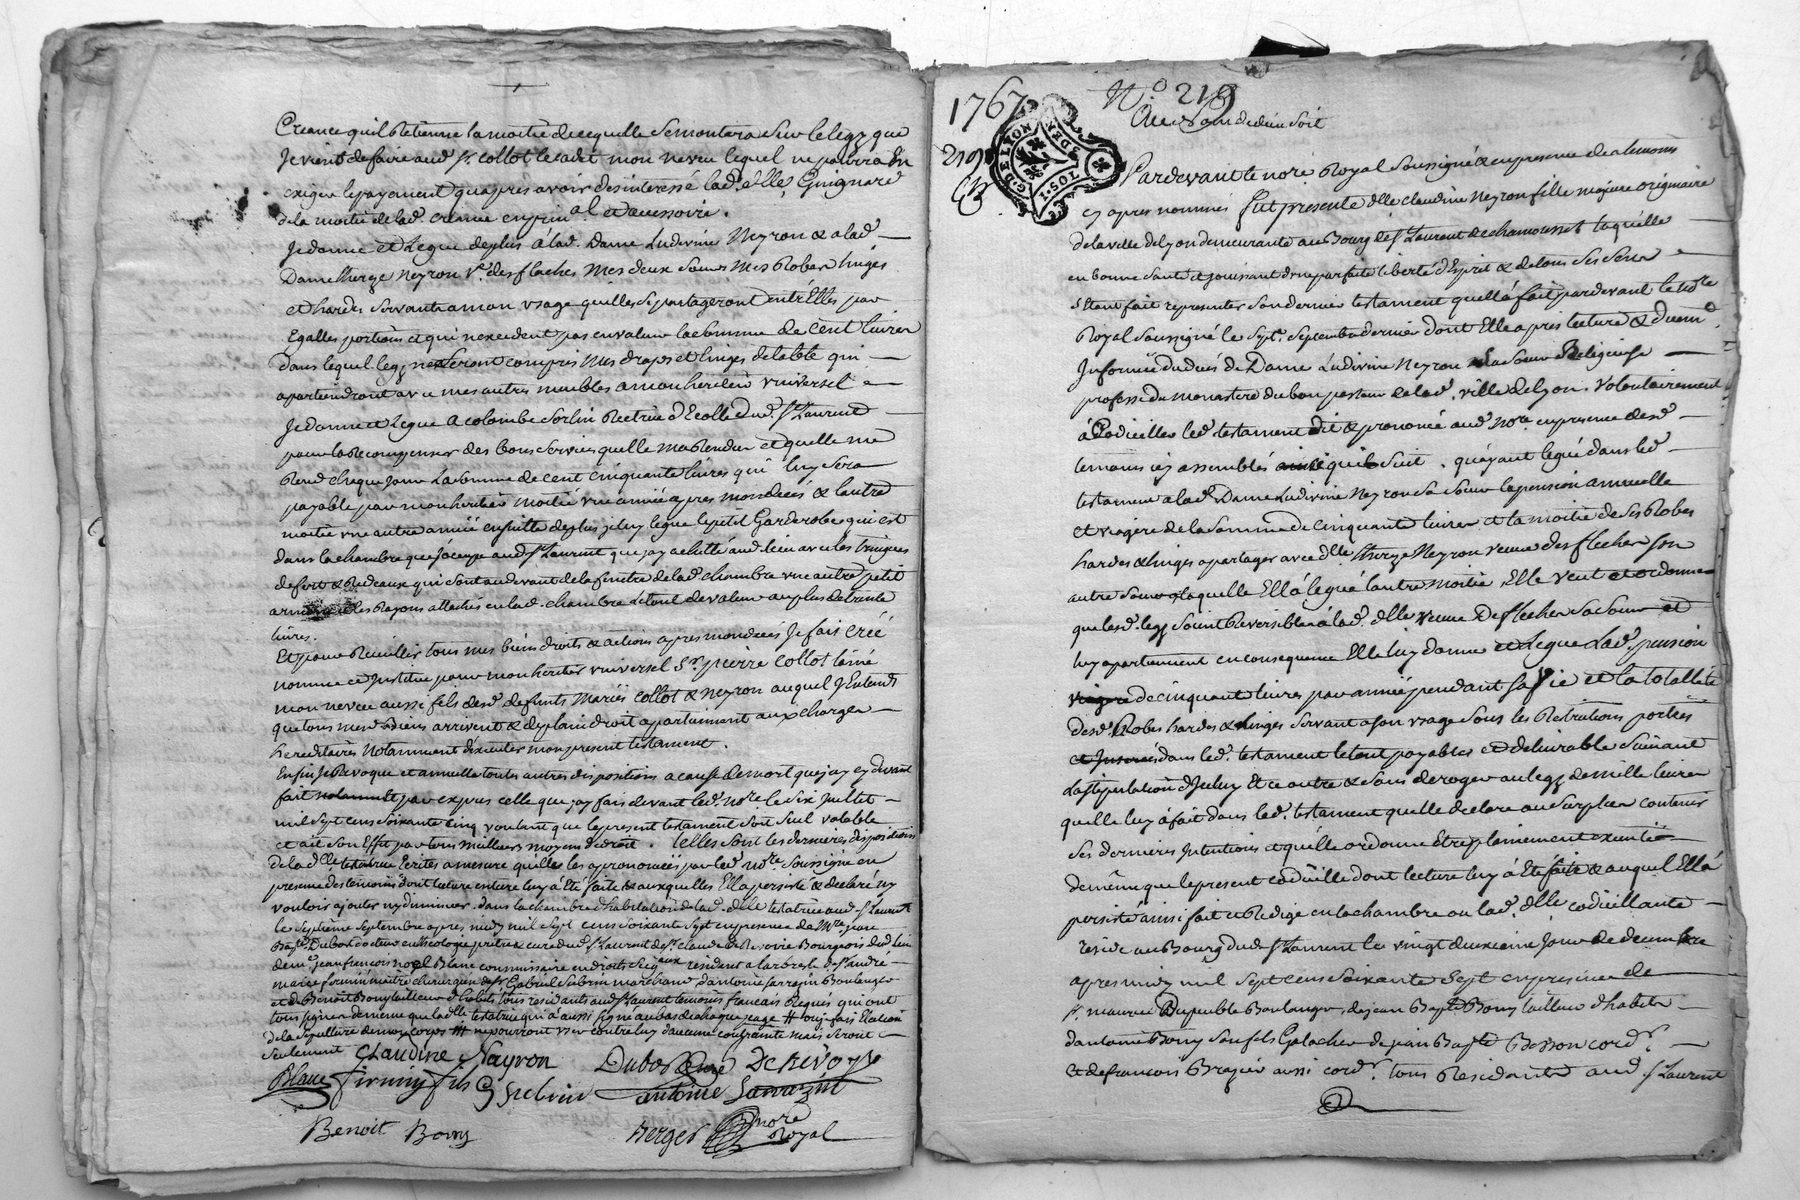 Creance quil Retienne la moitié de ce quelle se montera sur le legz que
Je viens de faire aud Sr. Collot le cadet mon neveu lequel ne pourra En
exiger le payement quapres avoir desinteressé lad. delle Guignard
de la moitié de lad. creance en prin.al et accessoire.
Je donne et Legue deplus á lad. Dame Ludivine Neyron & a lad.
Dame thereze Neyron Ve. desflaches mes deux soeurs mes Robes linges
et hardes servant a mon usage quelles se partageront entr'Elles par
Egalles portions et qui n'excedent pas en valeur la somme de cent livres
dans lequel legz ne seront compris mes draps et linges de table qui
apartiendront avec mes autres meubles a mon heritier universel
Je donne et Legue a colombe Sorlin Rectrice d'Ecolle dud. St Laurent
pour la Recompenser des bons services quelle ma Rendu et quelle me
Rend chaque jour la somme de cent cinquante livres qui luy sera
payable par mon heritier moitié une année apres mon décés & l'autre
moitié une autre année ensuitte de plus je luy legue le petit Garderobe qui est
dans la chambre que j'occupe aud. St Laurent que jay achetté aud. lieu avec les tringues
de fert & Rideaux qui sont au devant de la fenetre de lad. chambre une autre petit
armoire et les Rayons attachés en lad. chambre le tout de valeur au plus de trente
livres.
Et pour Recueillir tous mes biens droits & actions apres mon décés Je fais créé
nomme et Institue pour mon heritier universel Sr. pierre Collot l'ainé
mon neveu aussi fils desd. defunts mariés Collot & Neyron auquel J'Entends
que tous mesd. Biens arrivent & de plain droit apartiennent aux charges
hereditaires Notamment d'executer mon present testament.
Enfin Je Revoque et annulle toutes autres dispositions a cause de mort que jay cy devant
fait notamment par expres celle que jay fais devant led. no.re le six Juillet
mil sept cens soixante cinq voulant que le present testament soit seul valable
et ait son Effet par tous meilleurs moyens de droit. telles sont les dernieres dispositions
de lad. delle testatrice Ecrites a mesure quelle les a prononcées par led. no.re soussigné en
presence des temoins dont lecture entiere luy á Eté faite & auxquelles Ell'a persisté & declaré ny
vouloir ajouter ny diminuer. dans la chambre d'habitation de lad. delle testatrice aud. St Laurent
le septieme septembre apres midy mil sept cens soixante sept en presence de Mre. jean
Bapte. Dubost docteur en theologie pretre & curé dud. St Laurent de Sr. claude de Revoire Bourgeois dud. lieu
de me. jean francois noel Blanc commissaire en droits seig.aux resident a larbresle de Sr. andré
marie firmin maitre chirurgien de Sr Gabriel Subrin marchand d'antoine sarrazin Boulanger
et de Benoit Bony tailleur d'habits tous residants aud. St Laurent temoins francais Requis qui ont
tous signé de meme que lad. delle testatrice qui a aussi signé au bas de chaque page # touj fais Election
de la sepulture de mon corps ## ne pourront user contre luy d'aucune contrainte mais seront
seulement Claudine Nayron Dubost Curé De Revoyre
Blanc firminy fils G Subrin antoine Sarrazin
Benoit Bony Berger nore Royal
1767 No. 219
219
Au Nom de dieu soit
G. DE LYON 1. SOL 3 DEN
Pardevant le no.re Royal soussigné & en presence des temoins
cy apres nommés fut presente delle claudine Neyron fille majeure originaire
de la ville de Lyon demeurante au Bourg de St Laurent de chamousset laquelle
en bonne santé et jouissant d'une parfaite liberté d'Esprit & de tous ses sens
s'Etant fait representer son dernier testament quell'á fait pardevant le no.re
Royal soussigné le sept. septembre dernier dont Elle apres lecture & duem.
Informée du décés de Dame Ludivine Neyron sa soeur Religieuse
professe du monastere du bon pasteur de lad. ville de Lyon. Volontairement
á Codiciller led. testament dit & prononcé aud. no.re en presence desd.
temoins icy assemblés ainsi quil suit. qu'ayant legué dans led.
testament a lad. Dame Ludivine Neyron sa soeur la pension annuelle
et viagere de la somme de cinquante livres et la moitié de ses Robes
hardes & linges a partager avec delle. therese Neyron veuve desfleches son
autre soeur a laquelle Ell'á legué l'autre moitié, Elle veut et ordonne
que lesd. legz soint Reversibles á lad. delle veuve Desfleches sa soeur et
luy apartiennent en consequence Elle luy donne et Legue lad. pension
viagere de cinquante livres par année pendant sa vie et la totallité
desd. Robes hardes & linges servant a son usage sous les Restrictions portées
et Inserées dans led. testament le tout payables et delivrable suivant
la stipulation d'Iceluy Et ce outre & sans deroger au legz de mille livres
quelle luy á fait dans led. testament quelle declare au surplus contenir
ses dernieres Intentions et qu'elle ordonne Etre plainement executé
de même que le present codicille dont lecture luy á Eté faite & auquel Ell'á
persisté ainsi fait et Redigé en la chambre ou lad. delle codicillante
reside au Bourg dud. St Laurent le vingt deuxieme jour de decembre
apres midy mil sept cens soixante sept en presence de
Sr. maurice Dupeuble Boulanger, de jean Bapte Bony tailleur d'habits
d'antoine Bony son fils Galocher de jean Bapte Besson cord.r
& de francois Brazier aussi cord.r tous Residants aud. St Laurent